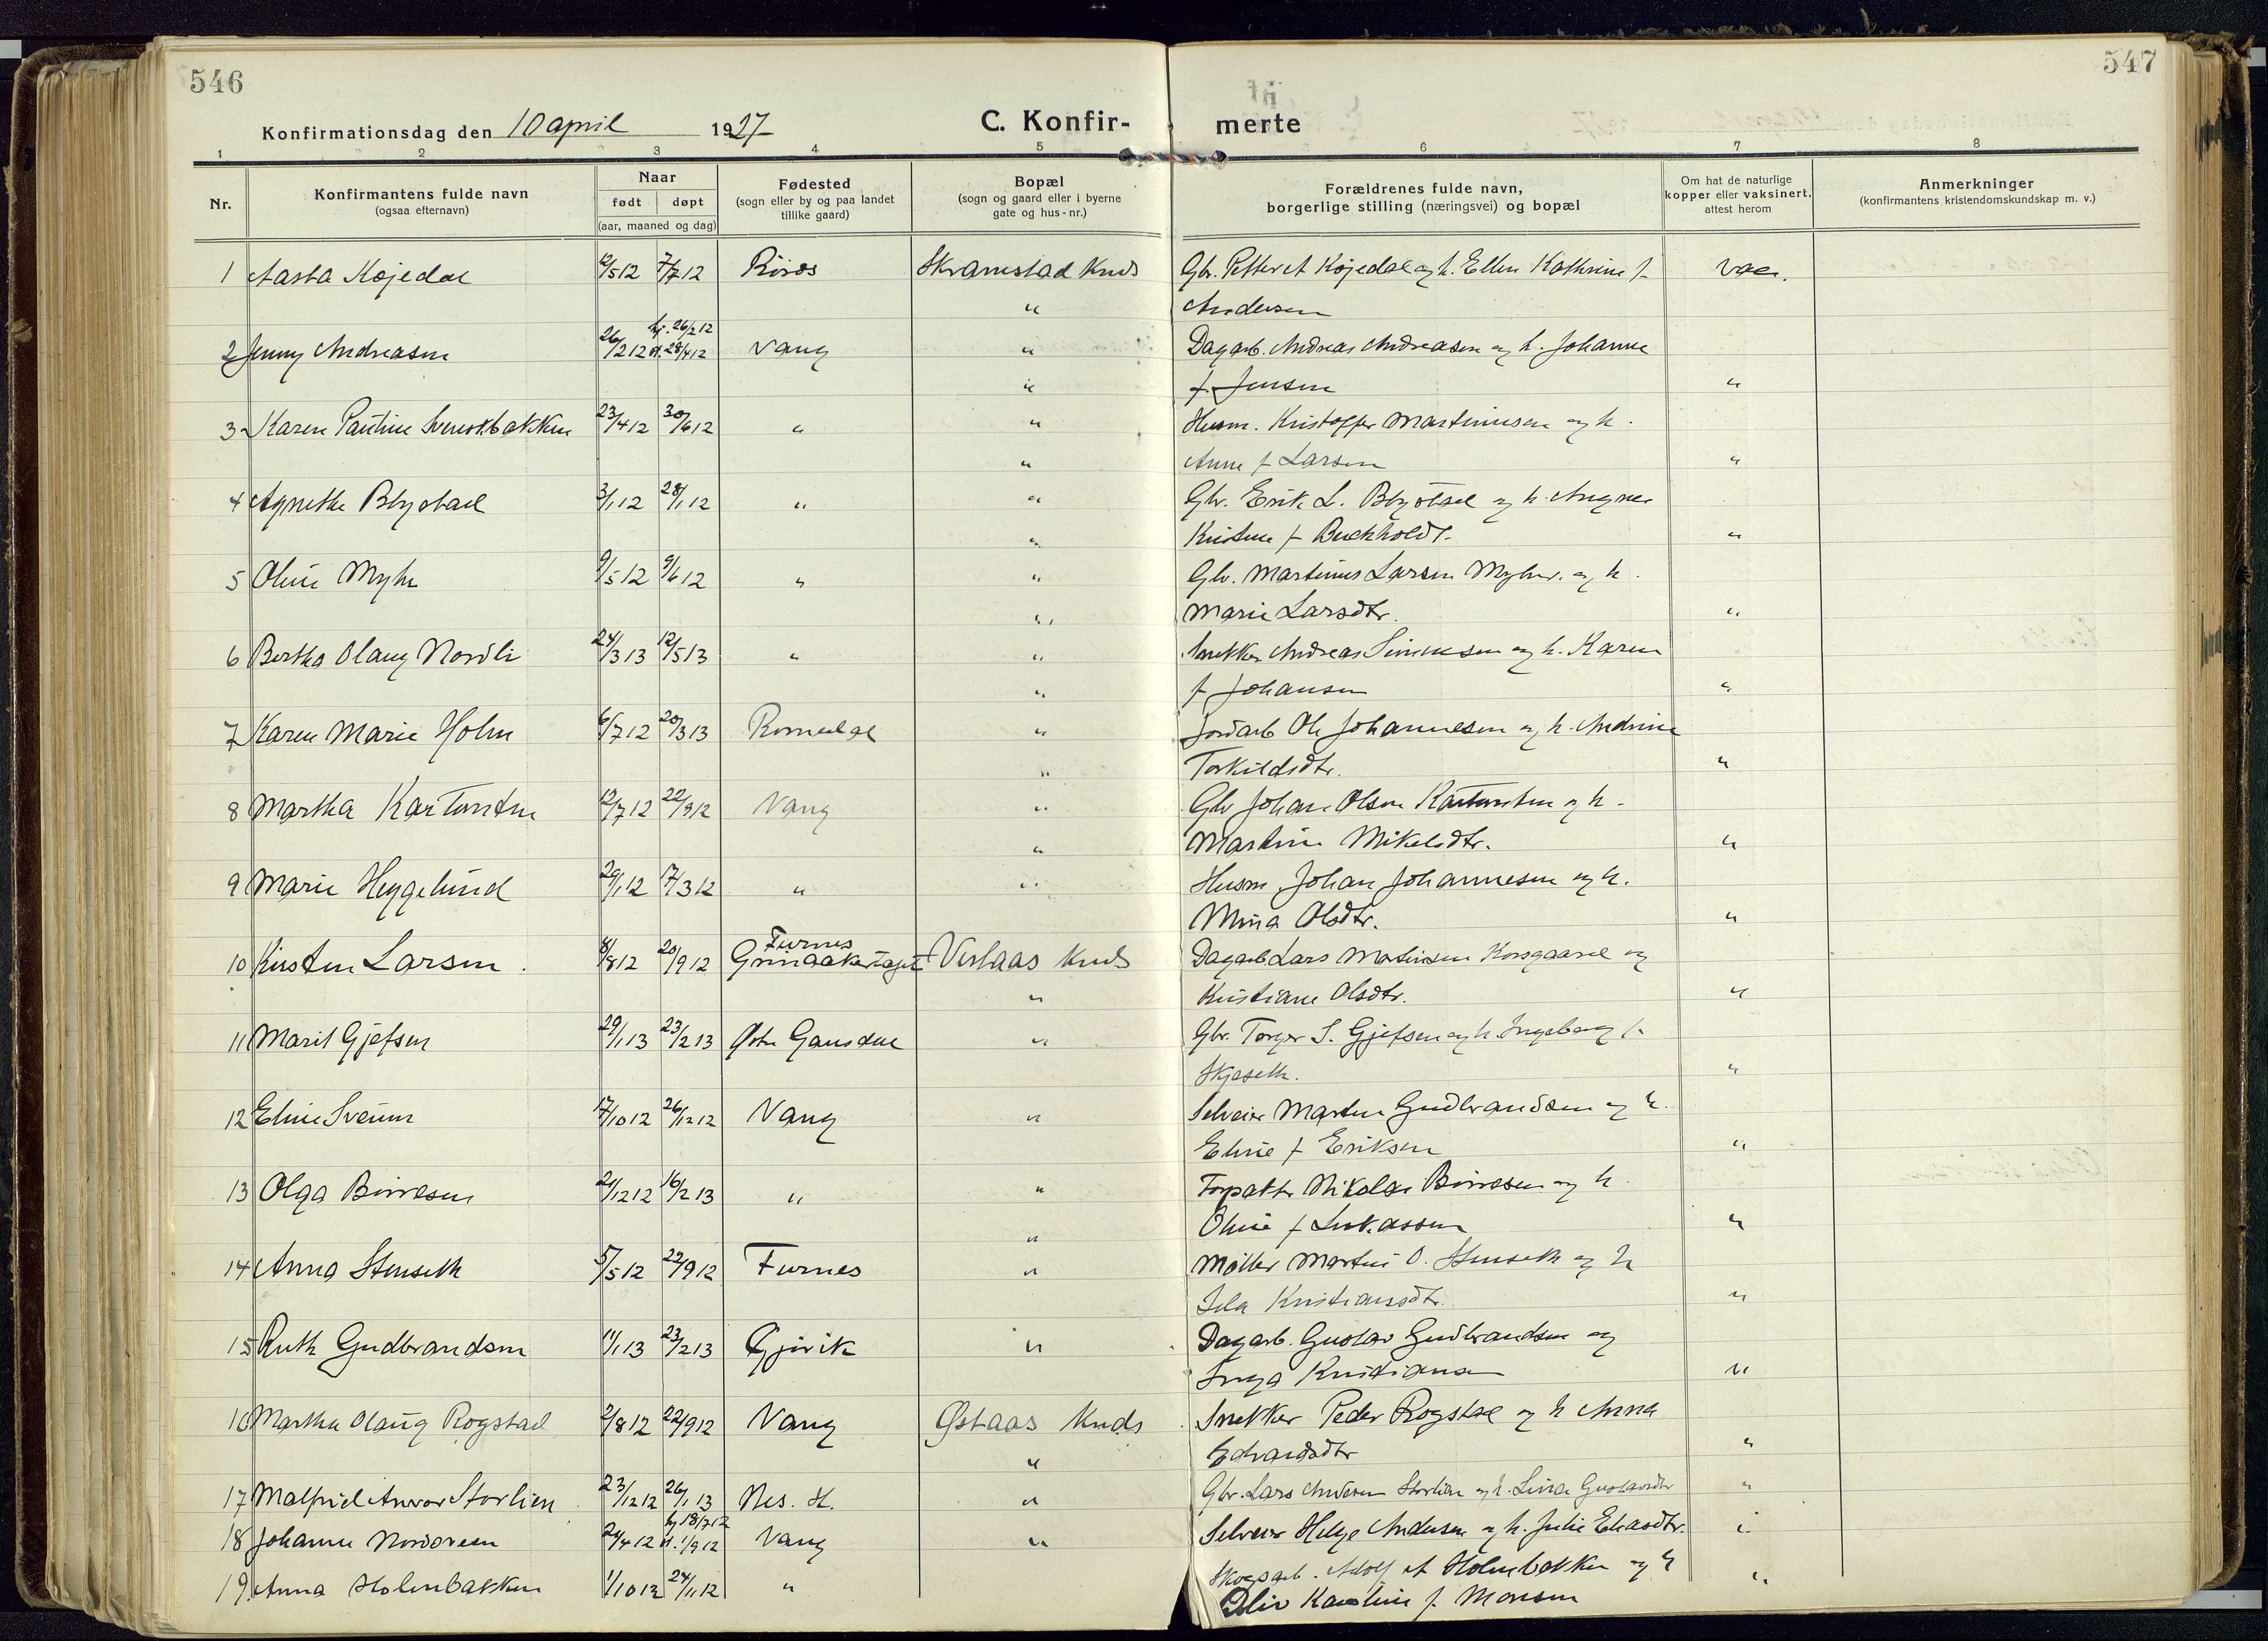 546
547
Konfirmationsdag den 10 april 1927
C. Konfir- merte
1 2 3 4 5 6 7 8
Nr.
Konfirmantens fulde navn
(ogsaa efternavn)
Naar
født døpt
(aar, maaned og dag)
Fødested
(sogn eller by og paa landet
tillike gaard)
Bopæl
(sogn og gaard eller i byerne
gate og hus-nr.)
Forældrenes fulde navn,
borgerlige stilling (næringsvei) og bopæl
Om hat de naturlige
kopper eller vaksinert,
attest herom
Anmerkninger
(konfirmantens kristendomskundskap m. v.)
1 Aasta Kojedal 7/7 12 Röros Skramstad Kreds Gbr. Petter A Kojedal og h. Ellen Kathrine f. vac.
" Andersen
hj. 26/2 12
2 Jenny Andreasen 26/2 12 st. 28/4 12 Vang " Dagarb. Andreas Andreasen og h. Johanne
" f. Jensen "
3 Karen Pauline Svenskbakken 23/4 12 30/6 12 " " Husm. Kristoffer Martinusen og h.
" Anne f Larsen "
4 Agnethe Blystad 3/1 12 28/1 12 " " Gbr. Erik L. Blystad og h. Angner
" Kristine f Buckholdt "
5 Oline Myhr 9/5 12 9/6 12 " " Gbr. Martinus Larsen Myhr. og h.
" Marie Larsdtr. "
6 Bertha Olaug Nordli 24/3 13 12/5 13 " " Snekker Andreas Simensen og h. Karen
" f Johansen "
7 Karen Marie Holm 6/7 12 20/3 13 Romedal " Jordarb Ole Johannesen og h. Andrine
" Torkildsdtr. "
8 Martha Kartunten 12/7 12 22/9 12 Vang " Gbr Johan Olsen Kartunten og h.
" Martine Mikelsdtr. "
9 Marie Heggelund 29/1 12 17/3 12 " " Husm Johan Johannesen og h.
Mina Olsdtr. "
Furnes
10 Kirsten Larsen 8/8 12 20/9 12 Grinaakertaget Veslaas Kreds Dagarb Lars Martinsen Korsgaard og
" Kristiane Olsdtr. "
11 Marit Gjefsen 29/1 13 23/2 13 Østre Gausdal " Gbr. Torger S. Gjefsen og h. Ingeborg f.
Skjæseth. "
12 Eline Sveum 17/10 12 26/12 12 Vang " Selveier Martin Gudbrandsen og h.
Eline f Eriksen "
13 Olga Börresen 21/12 12 16/2 13 " " Forpakter Nikolai Börresen og h.
" Oline f Lukassen "
14 Anna Stenseth 5/5 12 22/9 12 Furnes " Möller Martin O. Stenseth og h
Kristiansdtr. "
15 Ruth Gudbrandsen 11/1 13 23/2 13 Gjövik " Dagarb. Gustav Gudbrandsen og
Inga Kristiansen "
16 Martha Olaug Rogstad 2/8 12 22/9 12 Vang Østaas Kreds Snekker Peder Rogstad og h Anna
" Edvardsdtr "
17 Malfrid Storlien 23/12 12 26/1 13 Nes. H. " Gbr. Lars Andersen Storlien og h. Lina Gustavsdtr "
hj 18/7 12
18 Johanne 24/4 12 st. 1/9 12 Vang " Selveier Helge Andersen og h. Julie Eliasdtr. "
19. Anna Holenbakken 1/10 12 24/11 12 " Skogsarb. Adolf A Holenbakken og h "
Karoline f. Monsen